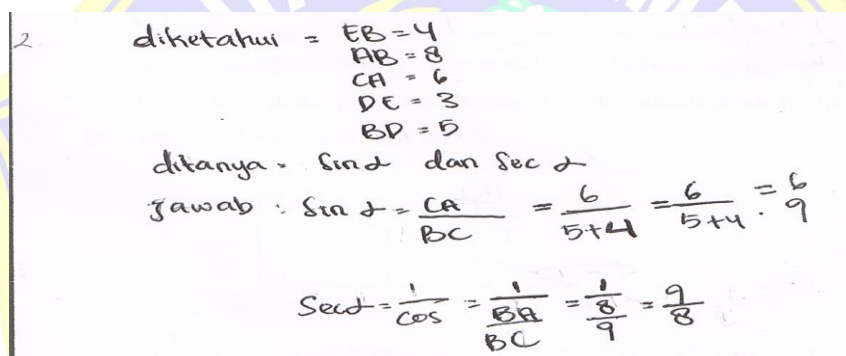 2. diketahui = EB = 4
AB = 8
CA = 6
DE = 3
BD = 5
ditanya = Sin α dan Sec α
Jawab : Sin α = CA/BC = 6/5+4 = 6/5+4 = 6/9
Sec α = 1/cos = 1/BA/BC = 1/8/9 = 9/8